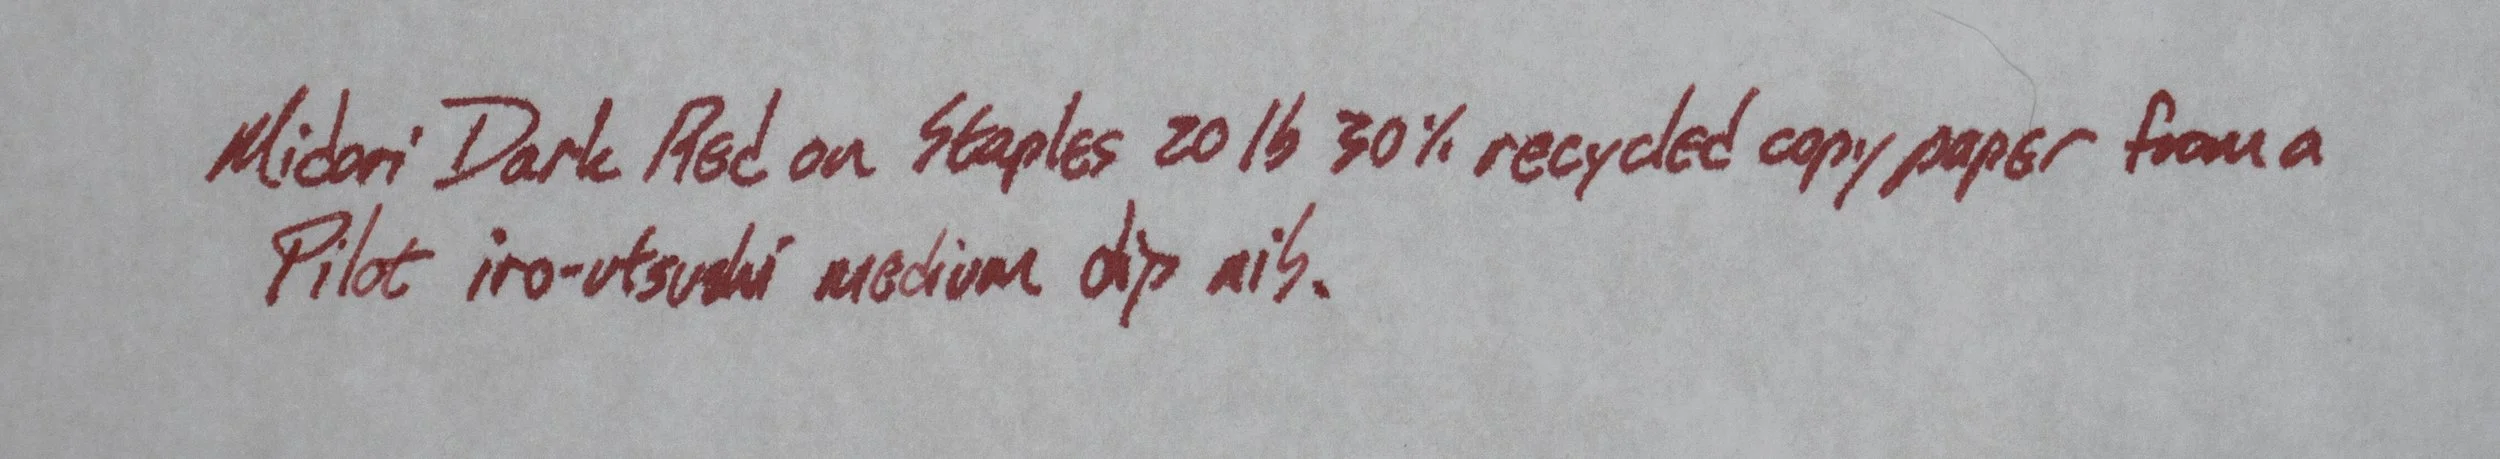 Midori Dark Red on Staples 20 lb 30% recycled copy paper from a
Pilot iro-utsushi medium dip nib.